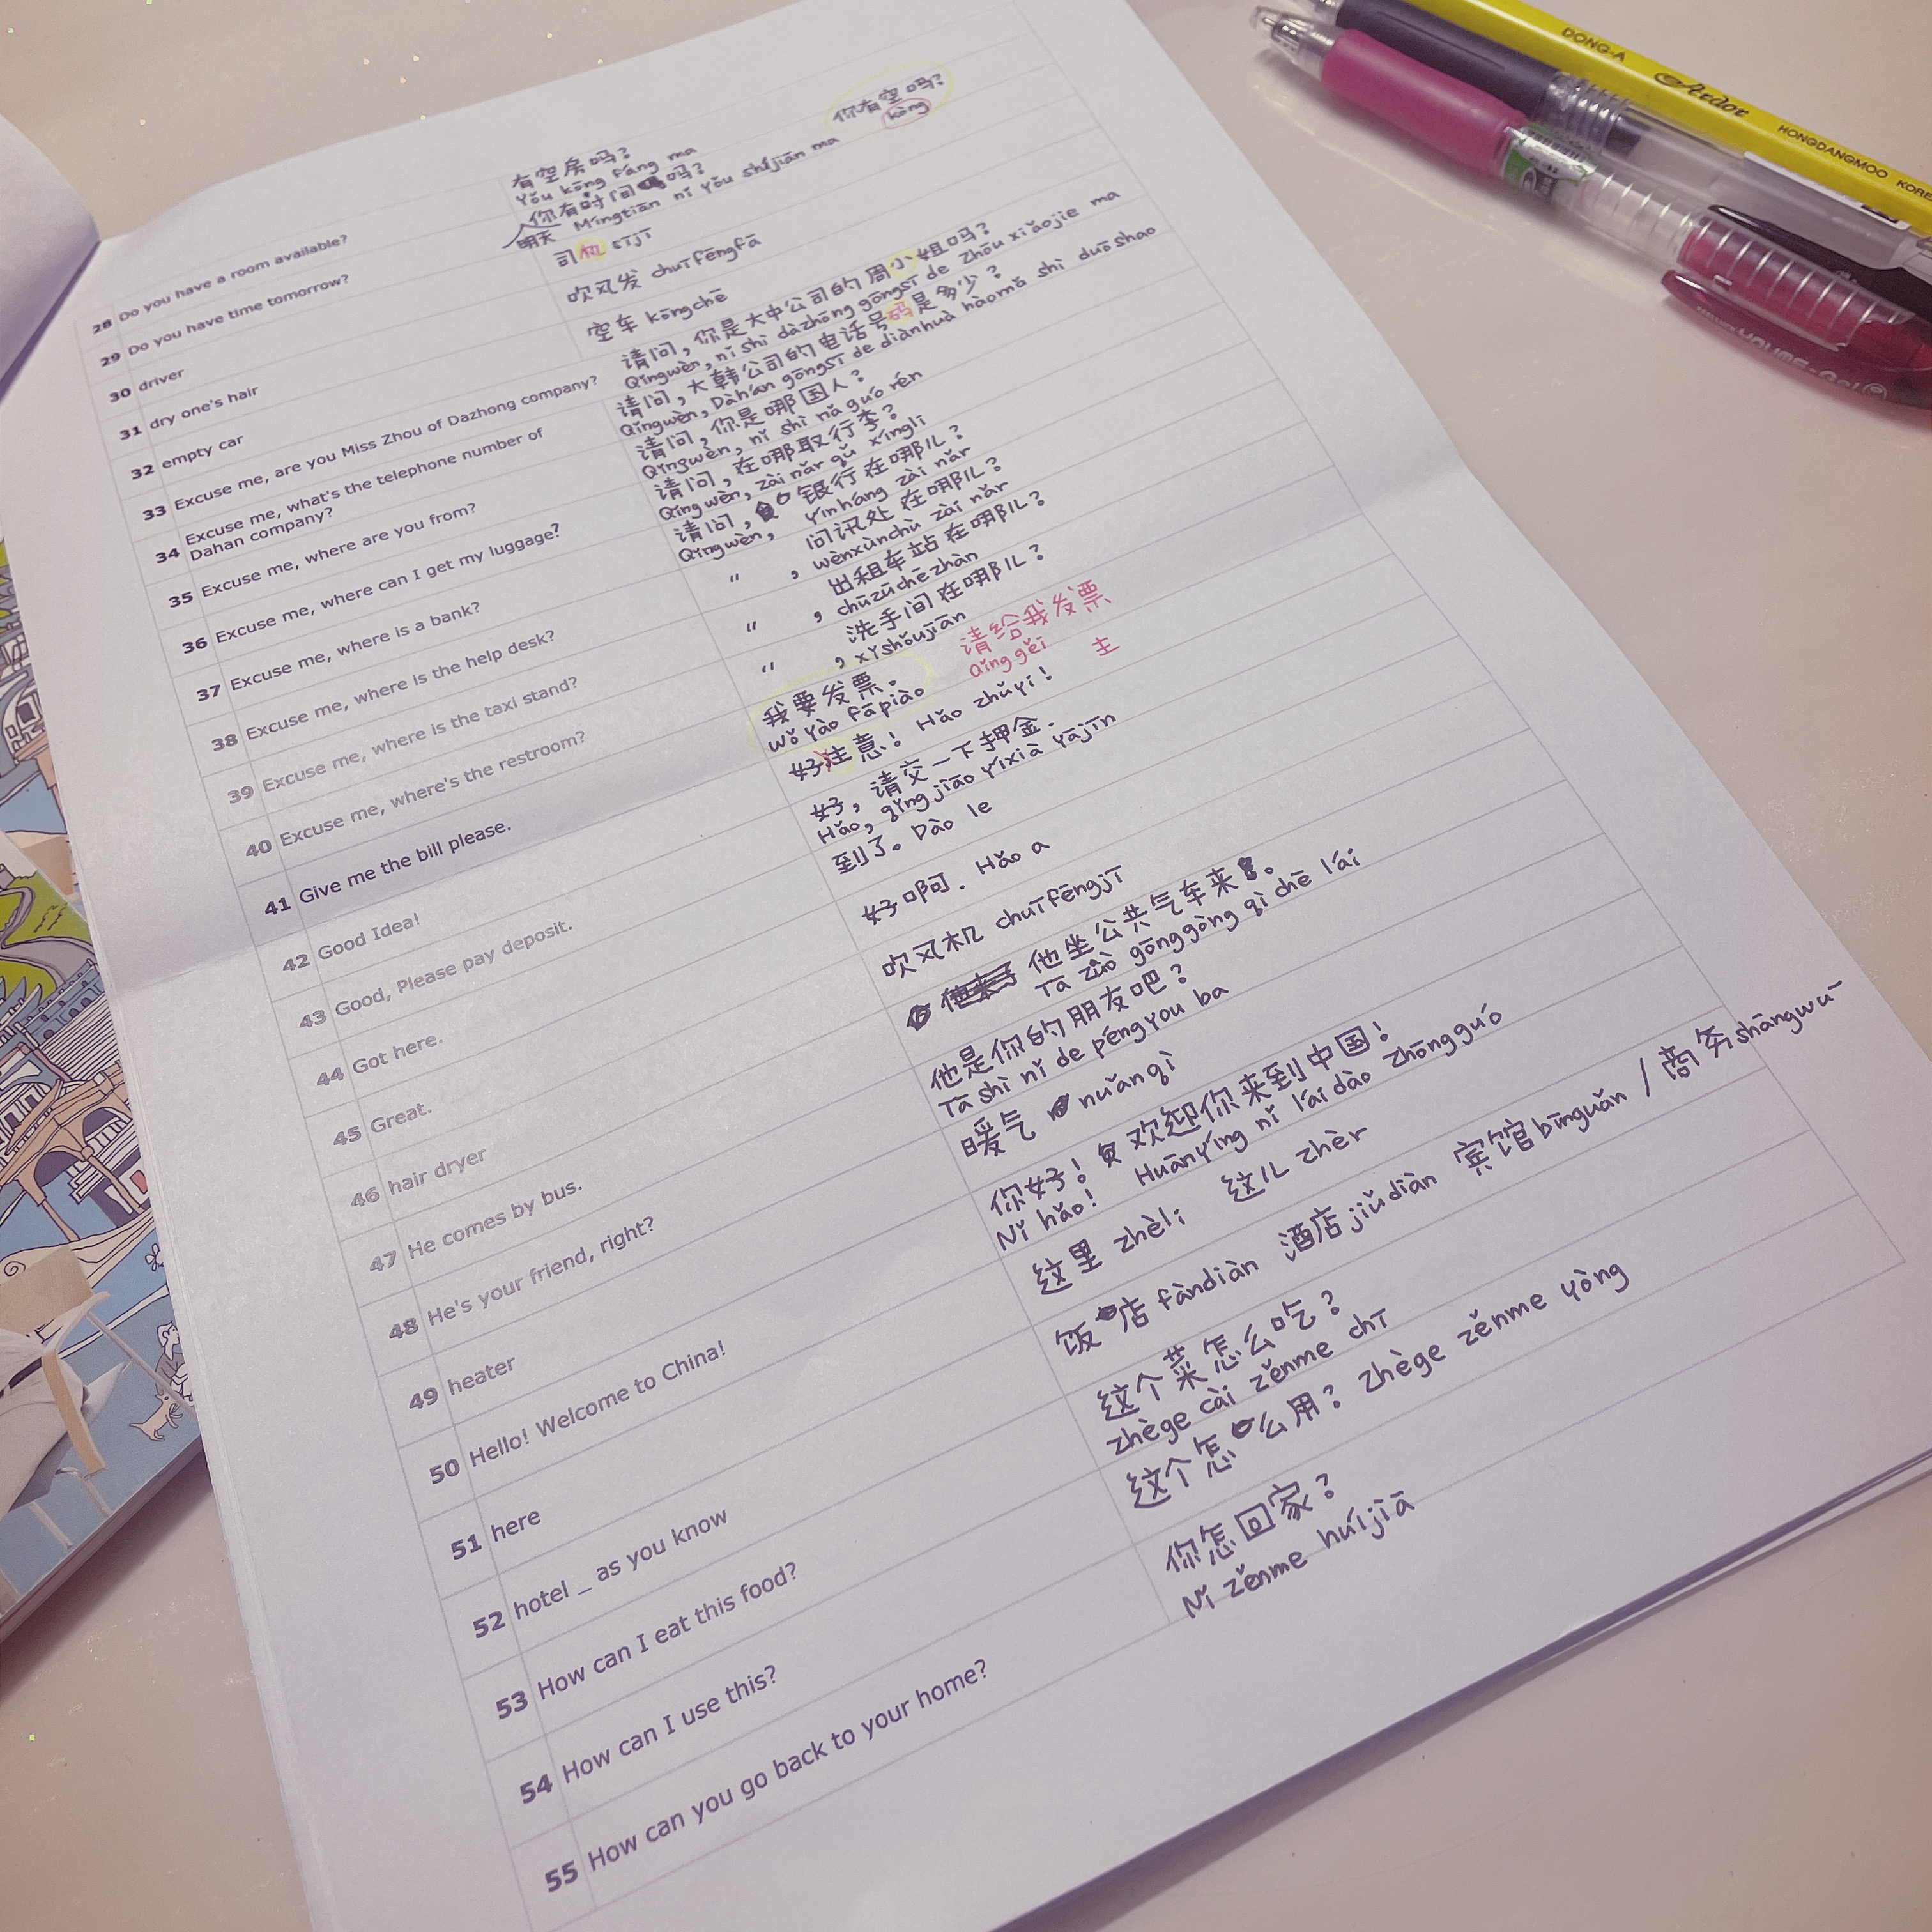 28 Do you have a room available?
有空房吗?
Yǒu kōng fáng ma
你有空吗?
kòng
29 Do you have time tomorrow?
你有时间吗?
明天 Míngtiān nǐ yǒu shíjiān ma
30 driver
司机 sījī
31 dry one's hair
吹风发 chuīfēngfā
32 empty car
空车 kōngchē
33 Excuse me, are you Miss Zhou of Dazhong company?
请问,你是大中公司的周小姐吗?
Qǐngwèn, nǐ shì dàzhōng gōngsī de zhōu xiǎojie ma
34 Excuse me, what's the telephone number of
Dahan company?
请问,大韩公司的电话号码是多少?
Qǐngwèn, Dàhán gōngsī de diànhuà hàomǎ shì duōshao
35 Excuse me, where are you from?
请问,你是哪国人?
Qǐngwèn, nǐ shì nǎ guó rén
36 Excuse me, where can I get my luggage?
请问,在哪取行李?
Qǐngwèn, zài nǎr qǔ xíngli
37 Excuse me, where is a bank?
请问, 银行在哪儿?
Qǐngwèn, yínháng zài nǎr
38 Excuse me, where is the help desk?
问讯处 在哪儿?
〃 , wènxùnchù zài nǎr
39 Excuse me, where is the taxi stand?
出租车站在哪儿?
〃 , chūzūchēzhàn
40 Excuse me, where's the restroom?
洗手间在哪儿?
〃 , xǐshǒujiān
41 Give me the bill please.
我要发票。
wǒ yào fāpiào
请给我发票
qǐng gěi
42 Good Idea!
好注意! Hǎo zhǔyi!
主
43 Good, Please pay deposit.
好,请交一下押金.
Hǎo, qǐng jiāo yíxià yājīn
44 Got here.
到了。Dào le
45 Great.
好啊. Hǎo a
46 hair dryer
吹风机 chuīfēngjī
47 He comes by bus.
他坐公共气车来。
Tā zuò gōnggòng qì chē lái
48 He's your friend, right?
他是你的朋友吧?
Tā shì nǐ de péngyou ba
49 heater
暖气 nuǎnqì
50 Hello! Welcome to China!
你好! 欢迎你来到中国!
Nǐ hǎo! Huānyíng nǐ lái dào zhōngguó
51 here
这里 zhèli 这儿 zhèr
52 hotel _ as you know
饭店 fàndiàn 酒店 jiǔdiàn 宾馆 bīnguǎn / 商务 shāngwù
53 How can I eat this food?
这个菜怎么吃?
zhège cài zěnme chī
54 How can I use this?
这个怎么用? zhège zěnme yòng
55 How can you go back to your home?
你怎回家?
Nǐ zěnme huíjiā
DONG-A Ardor HONGDANGMOO KORE